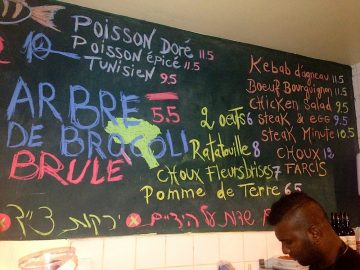 POISSON DORÉ 11.5
POISSON ÉPICÉ 11.5
TUNISIEN 9.5
ARBRE 5.5
DE BROCOLI
BRULÉ
2 oeufs 6
Ratatouille 8
CHOUX FleursBrises 7
Pomme de Terre 6.5
Kebab d'agneau 11.5
Boeuf Bourguignon 11.5
CHicken Salad 9.5
steak & egg 9.5
steak Minute 10.5
CHOUX 12
FARCIS
שדות על הדיים
ירקות